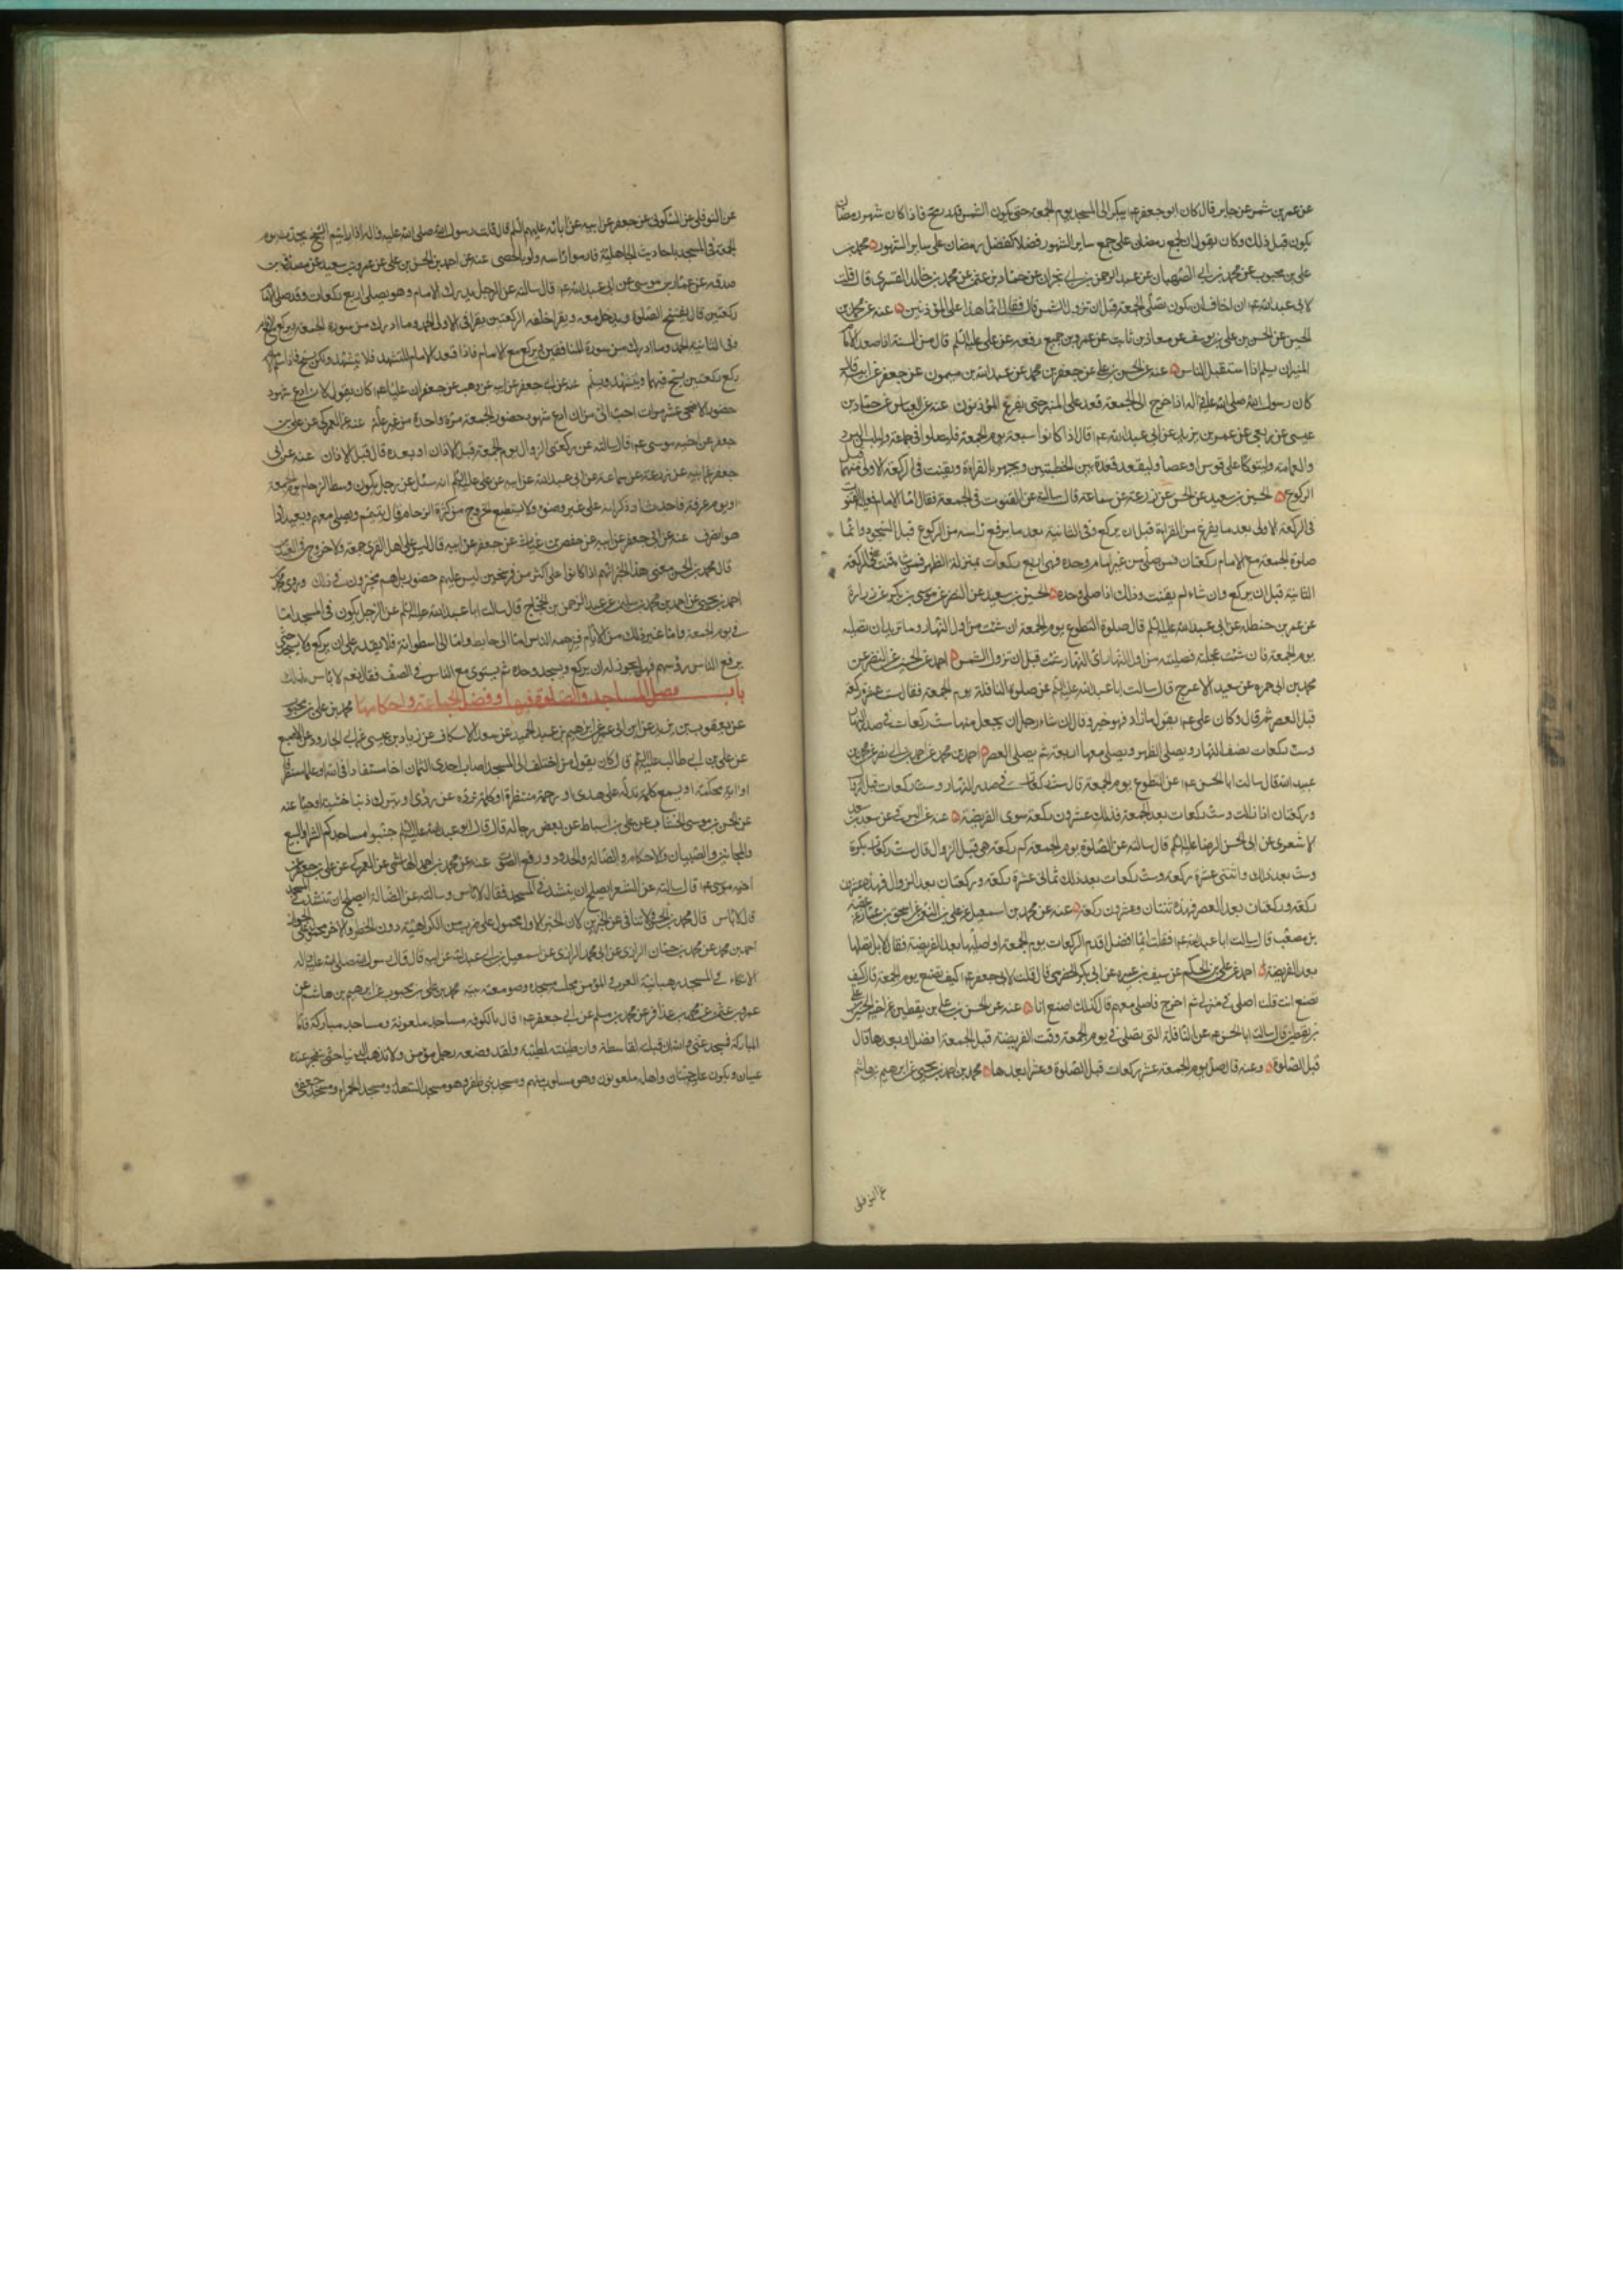 عن عمرو بن شمر عن جابر قال كان ابو جعفر ع يبكر الى المسجد يوم الجمعة حتى يكون الشمس قدر رمح فاذا كان شهر رمضان
يكون قبل ذلك وكان يقول ان لجمع رمضان على جمع ساير الشهور فضلا كفضل رمضان على ساير الشهور محمد بن
على بن محبوب عن محمد بن ابى الصهبان عن عبد الرحمن بن ابى نجران عن حماد بن عثمن عن محمد بن خالد القسرى قال قلت
لابى عبد الله ع انى اخاف ان نكون نصلى الجمعة قبل ان تزول الشمس قال فقال انما هذا على المؤذنين عنه عن محمد بن
الحسين عن الحسن بن على بن يوسف عن معاذ بن ثابت عن عمرو بن جميع رفعه عن على عليه السلم قال من السنة اذا صعد الامام
المنبر ان يسلم اذا استقبل الناس عنه عن الحسن بن على عن جعفر بن محمد عن عبد الله بن ميمون عن جعفر عن ابيه قال
كان رسول الله صلى الله عليه واله اذا خرج الى الجمعة قعد على المنبر حتى يفرغ المؤذنون عنه عن العباس عن حماد بن
عيسى عن ربعى عن عمر بن يزيد عن ابى عبد الله ع قال اذا كانوا سبعة يوم الجمعة فليصلوا فى جماعة وليلبس البرد
والعمامة وليتوكأ على قوس او عصا وليقعد قعدة بين الخطبتين ويجهر بالقراءة ويقنت فى الركعة الاولى منهما قبل
الركوع الحسين بن سعيد عن الحسن عن زرعة عن سماعة قال سالته عن القنوت فى الجمعة فقال اما الامام فعليه القنوت
فى الركعة الاولى بعد ما يفرغ من القراءة قبل ان يركع وفى الثانية بعد ما يرفع راسه من الركوع قبل السجود وانما
صلوة الجمعة مع الامام ركعتان فمن صلى من غير امام وحده فهى اربع ركعات بمنزلة الظهر فمن شاء قنت فى الركعة
الثانية قبل ان يركع وان شاء لم يقنت وذلك اذا صلى وحده الحسين بن سعيد عن النضر عن موسى بن بكر عن زرارة
عن عمر بن حنظلة عن ابى عبد الله عليه السلم قال صلوة التطوع يوم الجمعة ان شئت من اول النهار وما تريد ان تصليه
يوم الجمعة فان شئت عجلته فصليته من اول النهار اى النهار شئت قبل ان تزول الشمس احمد عن الحسين عن النضر عن
محمد بن ابى حمزه عن سعيد الاعرج قال سالت ابا عبد الله عليه السلم عن صلوة النافلة يوم الجمعة فقال ست عشرة ركعة
قبل العصر ثم قال وكان على ع يقول ما زاد فهو خير وقال ان شاء رجل ان يجعل منها ست ركعات فى صدر النهار
وست ركعات نصف النهار ويصلى الظهر ويصلى معها اربعة ثم يصلى العصر احمد بن محمد عن احمد بن ابى نصر عن محمد بن
عبد الله قال سالت ابا الحسن ع عن التطوع يوم الجمعة قال ست ركعات فى صدر النهار وست ركعات قبل الزوال
وركعتان اذا زالت وست ركعات بعد الجمعة فذلك عشرون ركعة سوى الفريضة عنه عن البرقى عن سعد بن سعد
الاشعرى عن ابى الحسن الرضا عليه السلم قال سالته عن الصلوة يوم الجمعة كم ركعة هى قبل الزوال قال ست ركعات بكرة
وست بعد ذلك واثنتى عشرة ركعة وست ركعات بعد ذلك ثمانى عشرة ركعة وركعتان بعد الزوال فهذه عشرون
ركعة وركعتان بعد العصر فهذه ثنتان وعشرون ركعة عنه عن محمد بن اسمعيل عن على بن النعمن عن اسحق بن عمار عن عقبة
بن مصعب قال سالت ابا عبد الله ع فقلت ايما افضل اقدم الركعات يوم الجمعة او اصليها بعد الفريضة فقال لا بل تصليها
بعد الفريضة احمد عن على بن الحكم عن سيف بن عميره عن ابى بكر الحضرمى قال قلت لابى جعفر ع كيف تصنع يوم الجمعة قال كيف
تصنع انت قلت اصلى فى منزلى ثم اخرج فاصلى معهم قال كذلك اصنع انا عنه عن الحسن بن على بن يقطين عن اخيه الحسين عن على
بن يقطين قال سالت ابا الحسن ع عن النافلة التى تصلى فى يوم الجمعة وقت الفريضة قبل الجمعة افضل او بعدها قال
قبل الصلوة وعنه قال صل يوم الجمعة عشر ركعات قبل الصلوة وعشرا بعدها محمد بن احمد بن يحيى عن ابرهيم بن هاشم
عن النوفلى
عن النوفلى عن السكونى عن جعفر عن ابيه عن ابائه عليهم السلم قال قال رسول الله صلى الله عليه واله اذا رايتم الشيخ يحدث يوم
الجمعة فى المسجد باحاديث الجاهلية فارموا راسه ولو بالحصى عنه عن احمد بن الحسن بن على عن عمرو بن سعيد عن مصدق بن
صدقه عن عمار بن موسى عن ابى عبد الله ع قال سالته عن الرجل يدرك الامام وهو يصلى اربع ركعات وقد صلى الامام
ركعتين قال يفتتح الصلوة ويدخل معه ويقرا خلفه الركعتين يقرا فى الاولى الحمد وما ادرك من سورة الجمعة ويركع مع الامام
وفى الثانية الحمد وما ادرك من سورة المنافقين ويركع مع الامام فاذا قعد الامام للتشهد فلا يتشهد ولكن يسبح فاذا سلم الامام
ركع ركعتين يسبح فيهما ويتشهد ويسلم عنه عن ابى جعفر عن ابيه عن وهب عن جعفر ان عليا ع كان يقول لان ادع شهود
حضور الاضحى عشر مرات احب الى من ان ادع شهود حضور الجمعة مرة واحدة من غير علة عنه عن العمركى عن على بن
جعفر عن اخيه موسى ع قال سالته عن ركعتى الزوال يوم الجمعة قبل الاذان او بعده قال قبل الاذان عنه عن ابى
جعفر عن ابيه عن زرعة عن سماعة عن ابى عبد الله عن ابيه عن على عليه السلم انه سئل عن رجل يكون وسط الزحام يوم الجمعة
او يوم عرفة فاحدث او ذكر انه على غير وضوء ولا يستطيع الخروج من كثرة الزحام قال يتيمم ويصلى معهم ويعيد اذا
هو انصرف عنه عن ابى جعفر عن ابيه عن حفص بن غياث عن جعفر عن ابيه قال ليس على اهل القرى جمعة ولا خروج فى العيدين
قال محمد بن الحسن معنى هذا الخبر انهم اذا كانوا على اكثر من فرسخين ليس عليهم حضور بل هم مخيرون فى ذلك وروى محمد
احمد بن يحيى عن احمد بن محمد بن عن عبد الرحمن بن الحجاج قال سالت ابا عبد الله عليه السلم عن الرجل يكون فى المسجد اما
فى يوم الجمعة واما غير ذلك من الايام فيزحمه الناس اما الى حايط واما الى اسطوانة فلا يقدر على ان يركع ولا يسجد حتى
يرفع الناس رؤسهم فهل يجوز له ان يركع ويسجد وحده ثم يستوى مع الناس فى الصف فقال نعم لا باس بذلك
باب فضل المساجد والصلوة فيها وفضل الجماعة واحكامها محمد بن على بن محبوب
عن يعقوب بن يزيد عن ابن ابى عمير عن ابرهيم بن عبد الحميد عن سعد الاسكاف عن زياد بن عيسى عن ابى الجارود عن الاصبغ
عن على بن ابى طالب عليه السلم قال كان يقول من اختلف الى المسجد اصاب احدى الثمان اخا مستفادا فى الله او علما مستظرفا
او اية محكمة او يسمع كلمة تدله على هدى او رحمة منتظرة او كلمة ترده عن ردى او يترك ذنبا خشية او حياء عنه
عن الحسن بن موسى الخشاب عن على بن اسباط عن بعض رجاله قال قال ابو عبد الله عليه السلم جنبوا مساجدكم الشراء والبيع
والمجانين والصبيان والاحكام والضالة والحدود ورفع الصوت عنه عن محمد بن احمد الهاشمى عن العمركى عن على بن جعفر عن
اخيه موسى ع قال سالته عن الشعر ايصلح ان ينشد فى المسجد فقال لا باس وسالته عن الضالة ايصلح ان تنشد فى المسجد
قال لا باس قال محمد بن الحسن ولا تنافى بين الخبرين لان الخبر الاول محمول على ضرب من الكراهية دون الحظر والاخر محمول على الجواز
احمد بن محمد عن محمد بن حسان الرازى عن ابى محمد الرازى عن اسمعيل بن ابى عبد الله عن ابيه قال قال رسول الله صلى الله عليه واله
الاتكاء فى المسجد رهبانية العرب المؤمن مجلسه مسجده وصومعته بيته محمد بن على بن محبوب عن ابرهيم بن هاشم عن
عمرو بن عثمن عن محمد بن عذافر عن محمد بن مسلم عن ابى جعفر ع قال بالكوفه مساجد ملعونة ومساجد مباركة فاما
المباركة فمسجد غنى والله ان قبلته لقاسطة وان طينته لطيبة ولقد وضعه رجل مؤمن ولا تذهب الدنيا حتى تنفجر عنده
عينان ويكون عليه جنتان واهله ملعونون وهو مسلوب منهم ومسجد بنى ظفر وهو مسجد السهلة ومسجد الحمراء ومسجد جعفى